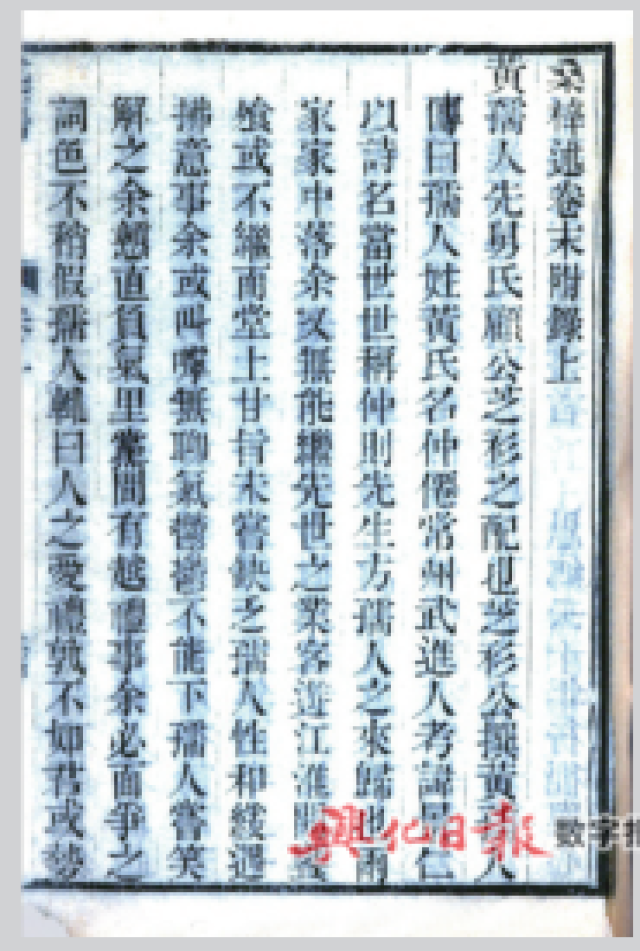 桑梓述卷末附錄上
黃孺人先舅氏顧公芝衫之配也芝衫公撰黃孺人
傳曰孺人姓黃氏名仲僊常州武進人考諱景仁
以詩名當世世稱仲則先生方孺人之來歸也兩
家家中落余又無能繼先世之業客遊江淮間
飧或不繼而堂上甘旨未嘗缺乏孺人性和緩遇
拂意事余或叫囂無聊氣不能下孺人嘗笑
解之余戇直負氣里黨間有越禮事余必面爭之
詞色不稍假孺人輒曰人之愛禮孰不如君或勢
興化日報 数字报